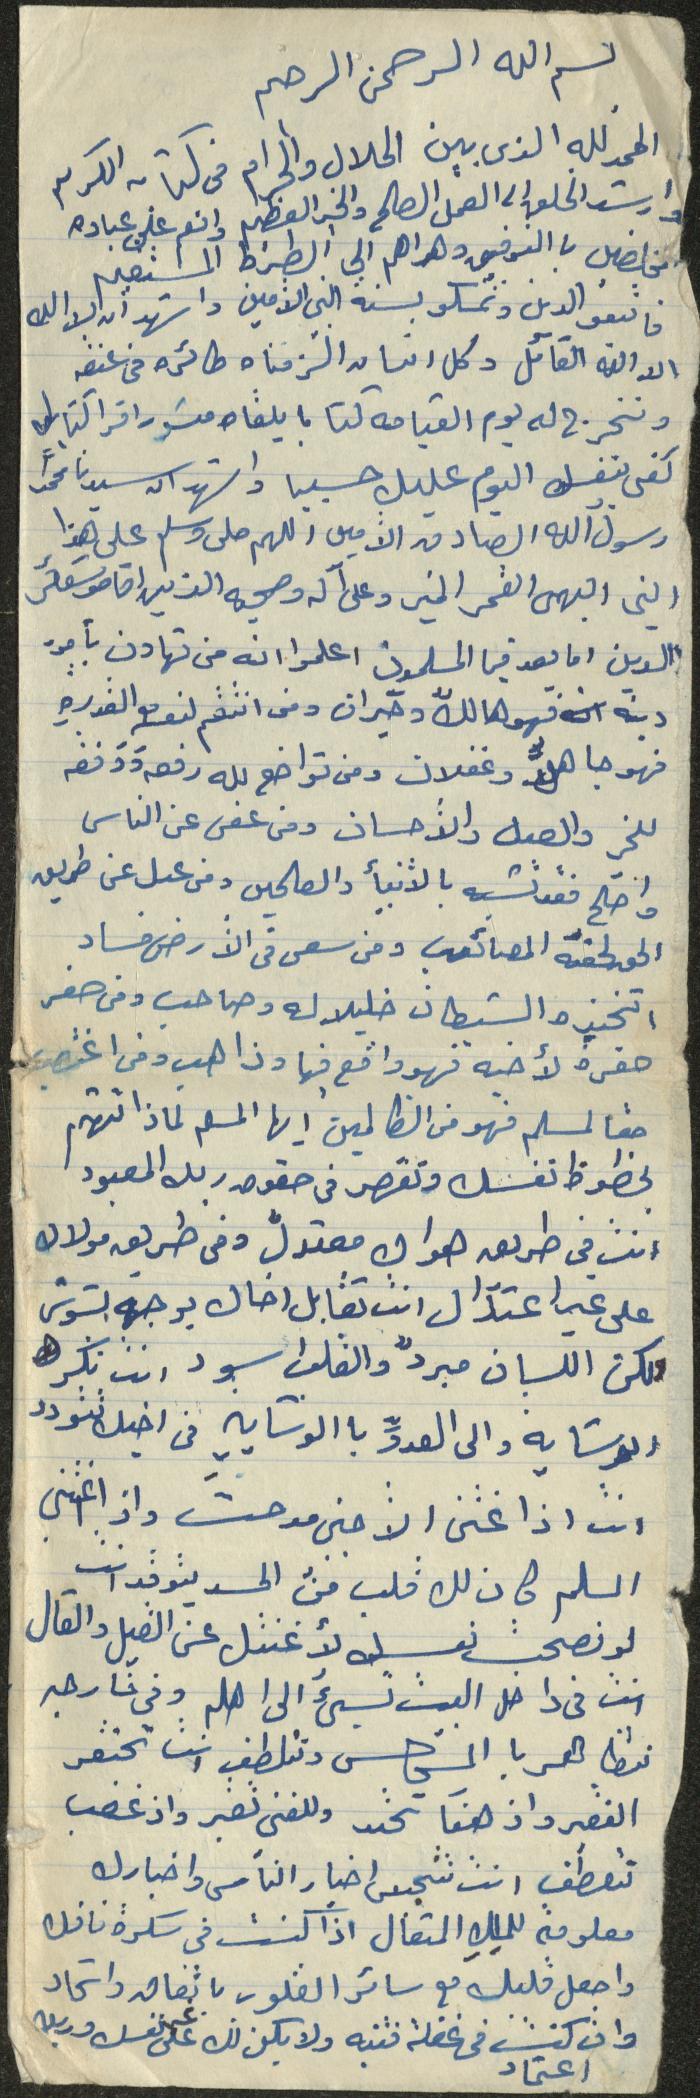 بسم الله الرحمن الرحيم
الحمد لله الذى بين الحلال والحرام فى كتابه الكريم
وارشد الخلق الى العمل الصالح والخير العظيم وانعم على عباده
مخلصين با التوفيق وهداهم الي الطريق المستقيم
فاتبعو الدين وتمسكو بسنة النبى الأمين واشهد ان لا اله
الا الله القائل وكل انسان الزمناه طائره فى عنقه
ونخرج له يوم القيامه كتابا يلقاه منشورا اقرا كتابك
كفى بنفسك اليوم عليك حسيبا واشهد ان سيدنا محمداً
رسول الله الصادق الأمين اللهم صلى وسلم على هذا
النبى البهى القمر المنير وعلى آله وصحبه الذين اقامو شعائر
الدين اما بعد فيا المسلمون اعلموا انه من تهاون بأمور
دينه فهو هالكٌ وحيران ومن انتقم لنفسه مع القدره
فهو جاهلٌ وغفلان ومن تواضع لله رفعه ووفقه
للخير والعدل والأحسان ومن عفى عن الناس
واصلح فقد تشبه بالأنبيأ والصالحين ومن عدل عن طريق
الحق لحقته المصائب ومن سعى فى الأرض فساد
اتخذه الشيطان خليلا له وصاحب ومن حفر
حفرة لأخيه فهو واقع فيها وذاهب ومن اغتصب
حقا لمسلم فهو من الظالمين ايها المسلم لماذا تهتم
بحظوظ نفسك وتقصر فى حقوق ربك المعبود
انت في طريق هواك معتدلٌ وفى طريق مولاك
على غير اعتدال انت تقابل اخاك بوجه بشوش
لكن اللسان مبردٌ والقلب اسود انت تكره
الوشاية والى العدوِّ با الوشايه فى اخيك تتودد
انت اذا اغتنى الأجنبى مدحت واذ اغتنى
المسلم كان لك قلب من الحسد يتوقد انت
لو نصحت نفسك لأغنتك عن القيل والقال
انت فى داخل البيت تسئ الى اهله وفى خارجه
تتظاهر با وتتلطف انت تحتقر
الفقير واذ هفا تحتد وللغنى تعتبر واذ غضب
تتعطف انت تتجسس اخبار الناس واخبارك
معلومة للملك المتعال اذا كنت فى سكرة فافك
واجعل قلبك مع سائر القلوب باتفاق واتحاد
وان كنت فى غفلة فتنبه ولا يكن لك على غير نفسك وربك
اعتماد